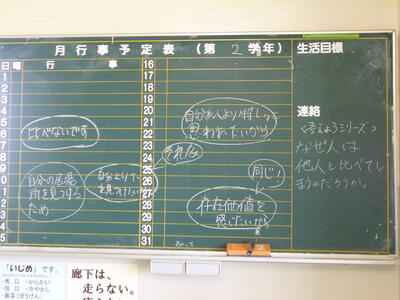 月 行 事 予 定 表 （第 2 学年）
生活目標
日 曜 行 事
1
2
3
4
5
6
7
8
9
10
11
12
13
14
15
16
17
18
19
20
21
22
23
24
25
26
27
28
29
30
31
比べないです
自分の居場
所を見つける
ため
それな
自分が人より特しゅ
思われたいから
同じ!
存在価値を
感じたいから
連絡
＜考えようシリーズ＞
なぜ人は
他人と比べてし
まうのだろうか。
「いじめ」です。
・悪口 ・からかい
・陰口 ・冷やかし
・暴言(ぼうげん)
廊下は、
走らない。